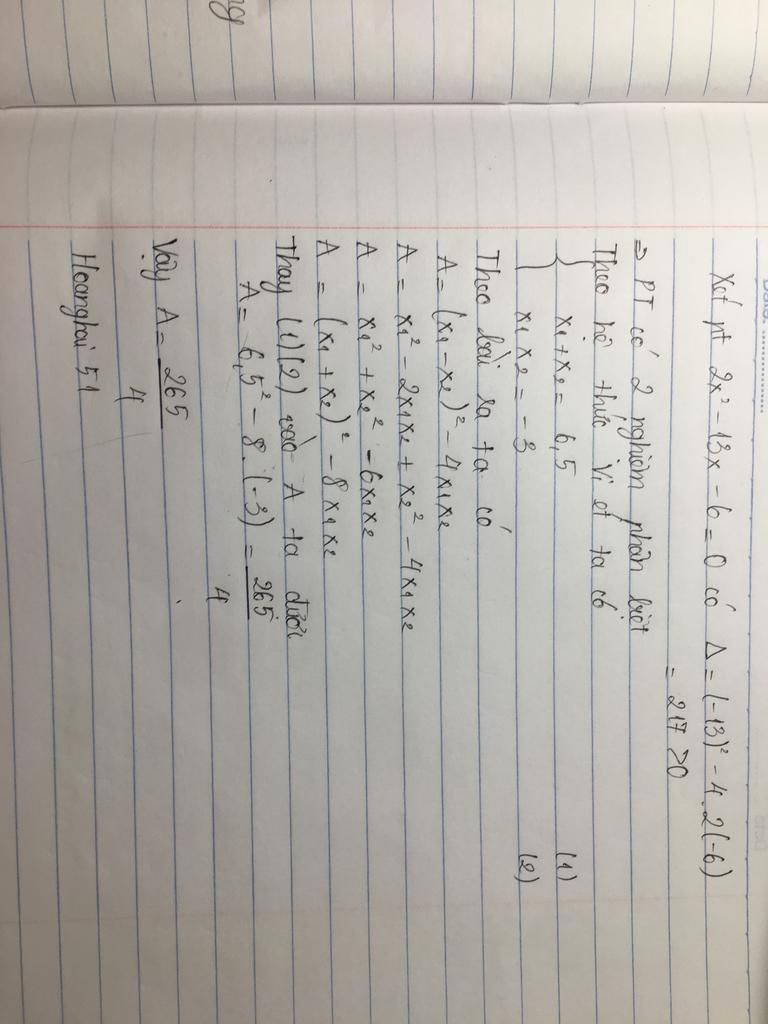 ng
Xét pt 2x² - 13x - 6 = 0 có Δ = (-13)² - 4.2(-6)
= 217 > 0
=> PT có 2 nghiệm phân biệt
Theo hệ thức Vi et ta có
{ x₁ + x₂ = 6,5 (1)
x₁x₂ = -3 (2)
Theo bài ra ta có
A = (x₁ - x₂)² - 4x₁x₂
A = x₁² - 2x₁x₂ + x₂² - 4x₁x₂
A = x₁² + x₂² - 6x₁x₂
A = (x₁ + x₂)² - 8x₁x₂
Thay (1)(2) vào A ta được
A = 6,5² - 8.(-3) = 265/4
Vậy A = 265/4
Hoanghai 51